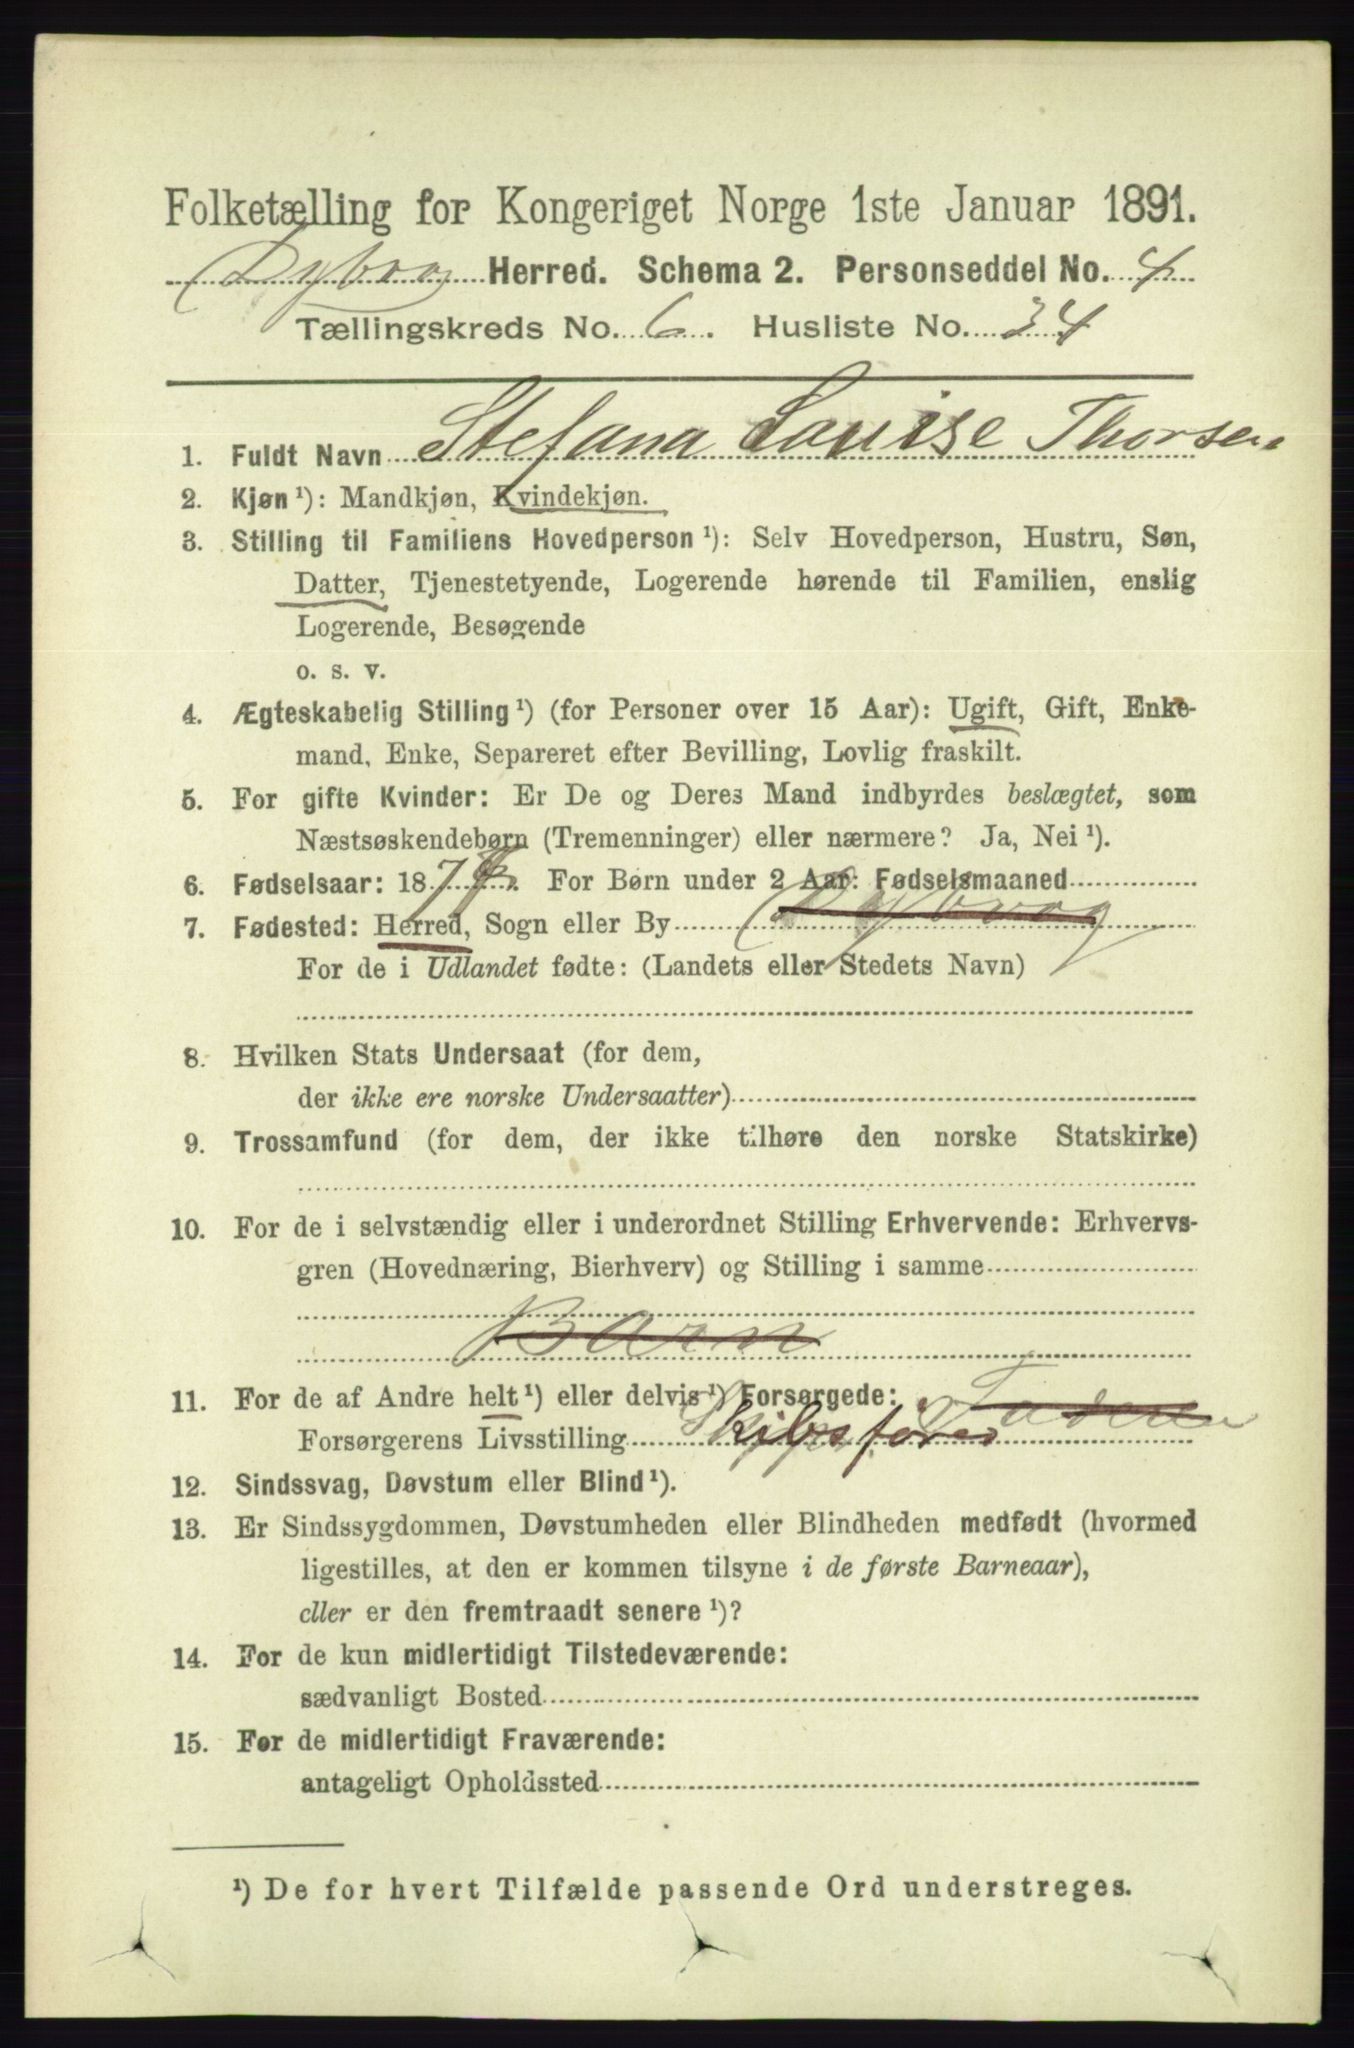 Folketælling for Kongeriget Norge 1ste Januar 1891.
Dybvog Herred. Schema 2. Personseddel No. 4
Tællingskreds No. 6. Husliste No. 34
1. Fuldt Navn Stefana Louise Thorsen
2. Kjøn ¹): Mandkjøn, Kvindekjøn.
3. Stilling til Familiens Hovedperson ¹): Selv Hovedperson, Hustru, Søn,
Datter, Tjenestetyende, Logerende hørende til Familien, enslig
Logerende, Besøgende
o. s. v.
4. Ægteskabelig Stilling ¹) (for Personer over 15 Aar): Ugift, Gift, Enke-
mand, Enke, Separeret efter Bevilling, Lovlig fraskilt.
5. For gifte Kvinder: Er De og Deres Mand indbyrdes beslægtet, som
Næstsøskendebørn (Tremenninger) eller nærmere? Ja, Nei ¹).
6. Fødselsaar: 187 . For Børn under 2 Aar: Fødselsmaaned
7. Fødested: Herred, Sogn eller By Dybvog
For de i Udlandet fødte: (Landets eller Stedets Navn)
8. Hvilken Stats Undersaat (for dem,
der ikke ere norske Undersaatter)
9. Trossamfund (for dem, der ikke tilhøre den norske Statskirke)
10. For de i selvstændig eller i underordnet Stilling Erhvervende: Erhvervs-
gren (Hovednæring, Bierhverv) og Stilling i samme
Barn
11. For de af Andre helt ¹) eller delvis ¹) Forsørgede: Faderen
Forsørgerens Livsstilling Skibsfører
12. Sindssvag, Døvstum eller Blind ¹).
13. Er Sindssygdommen, Døvstumheden eller Blindheden medfødt (hvormed
ligestilles, at den er kommen tilsyne i de første Barneaar),
eller er den fremtraadt senere ¹)?
14. For de kun midlertidigt Tilstedeværende:
sædvanligt Bosted
15. For de midlertidigt Fraværende:
antageligt Opholdssted
¹) De for hvert Tilfælde passende Ord understreges.